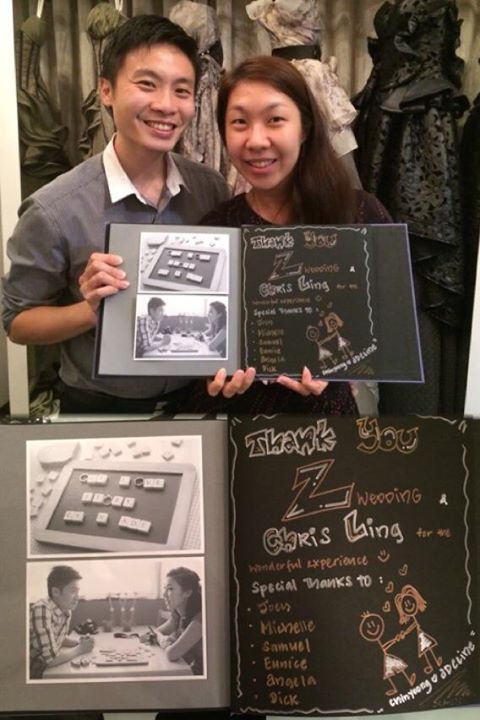 Thank You
Z WEDDING &
Chris Ling for the
wonderful experience
Special Thanks to :
Michelle
Samuel
Eunice
Angela
Dick
OUR LOVE
STORY
Thank You
Z WEDDING &
Chris Ling for the
wonderful experience
Special Thanks to :
• Michelle
• Samuel
• Eunice
• Angela
• Dick